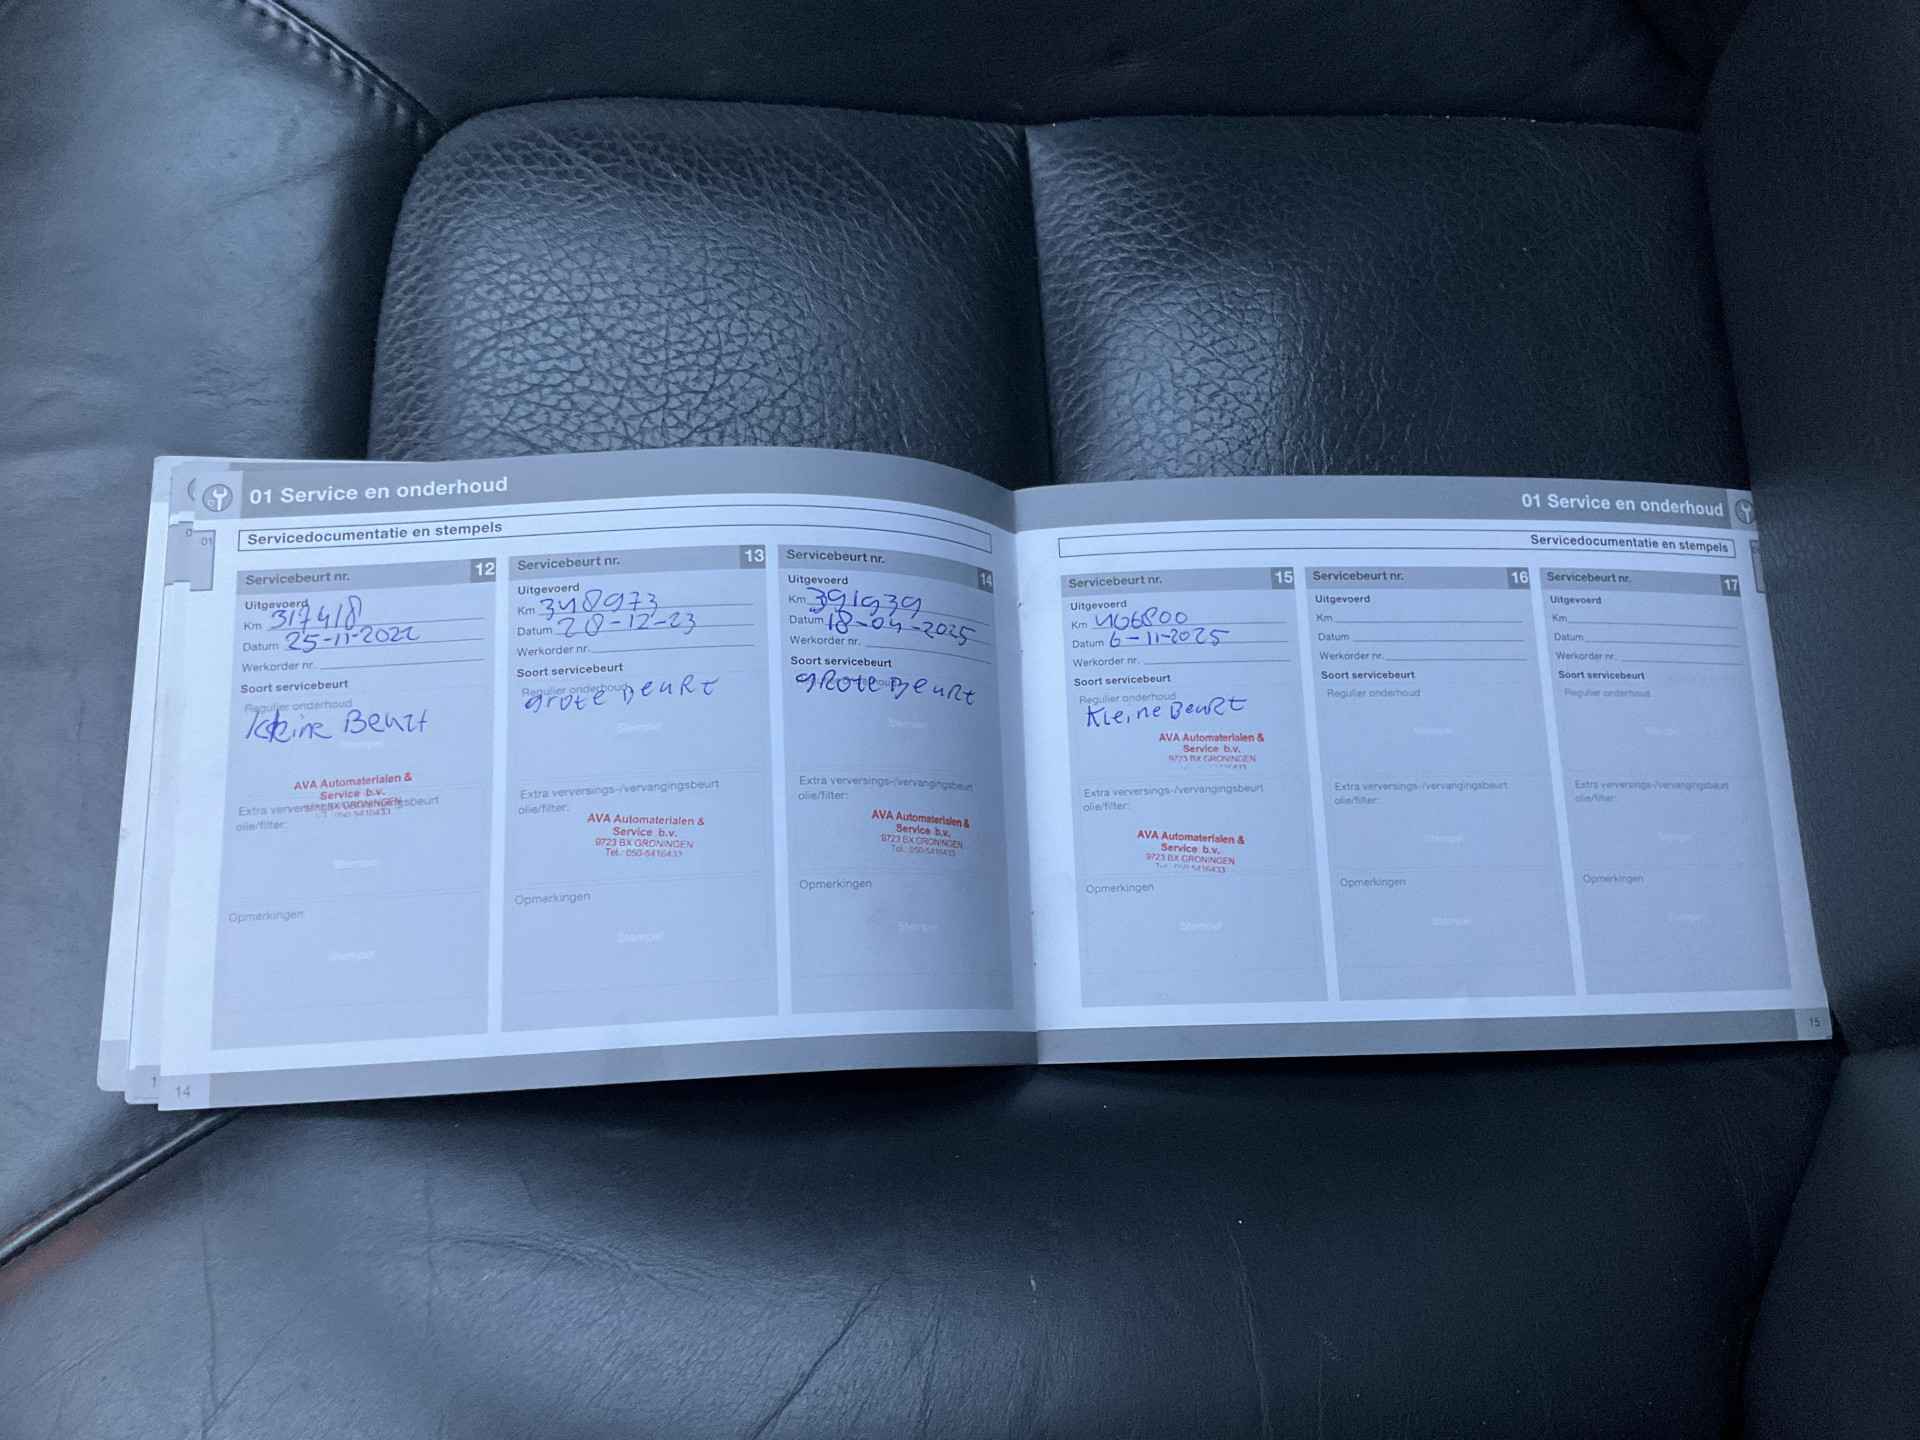 01 Service en onderhoud
Servicedocumentatie en stempels
01
Servicebeurt nr. 12
Uitgevoerd
Km 317418
Datum 25-11-2022
Werkorder nr.
Soort servicebeurt
Regulier onderhoud
kleine Beurt
AVA Automaterialen &
Service b.v.
9723 BX GRONINGEN
Tel.: 050-5416433
Extra verversings-/vervangingsbeurt
olie/filter:
Stempel
Opmerkingen
Stempel
Servicebeurt nr. 13
Uitgevoerd
Km 348973
Datum 20-12-23
Werkorder nr.
Soort servicebeurt
Regulier onderhoud
grote Beurt
Stempel
Extra verversings-/vervangingsbeurt
olie/filter:
AVA Automaterialen &
Service b.v.
9723 BX GRONINGEN
Tel.: 050-5416433
Opmerkingen
Stempel
Servicebeurt nr. 14
Uitgevoerd
Km 391939
Datum 18-04-2025
Werkorder nr.
Soort servicebeurt
gRote Beurt
Stempel
Extra verversings-/vervangingsbeurt
olie/filter:
AVA Automaterialen &
Service b.v.
9723 BX GRONINGEN
Tel.: 050-5416433
Opmerkingen
Stempel
14
01 Service en onderhoud
Servicedocumentatie en stempels
Servicebeurt nr. 15
Uitgevoerd
Km 406800
Datum 6-11-2025
Werkorder nr.
Soort servicebeurt
Regulier onderhoud
Kleine BeuRt
AVA Automaterialen &
Service b.v.
9723 BX GRONINGEN
Extra verversings-/vervangingsbeurt
olie/filter:
AVA Automaterialen &
Service b.v.
9723 BX GRONINGEN
Tel.: 050-5416433
Opmerkingen
Stempel
Servicebeurt nr. 16
Uitgevoerd
Km
Datum
Werkorder nr.
Soort servicebeurt
Regulier onderhoud
Stempel
Extra verversings-/vervangingsbeurt
olie/filter:
Stempel
Opmerkingen
Stempel
Servicebeurt nr. 17
Uitgevoerd
Km
Datum
Werkorder nr.
Soort servicebeurt
Regulier onderhoud
Extra verversings-/vervangingsbeurt
olie/filter:
Opmerkingen
Stempel
15